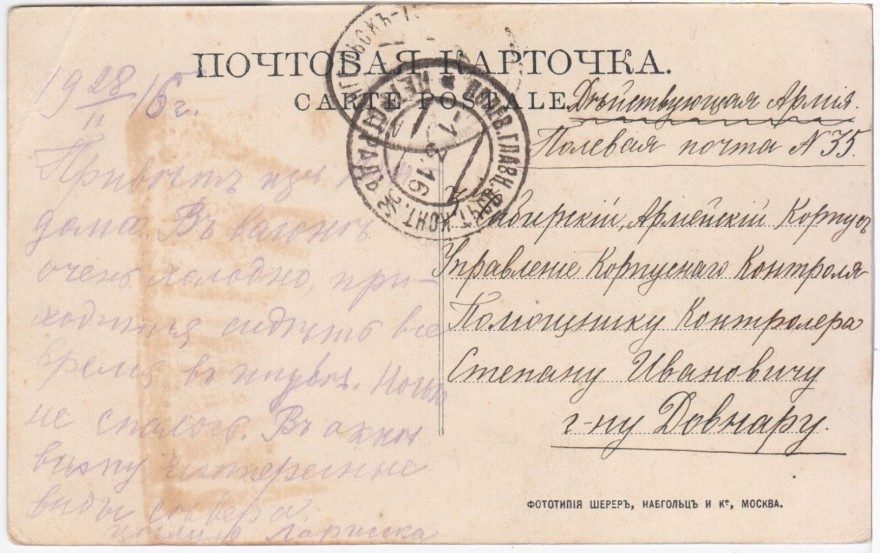 ПОЧТОВАЯ КАРТОЧКА.
CARTE POSTALE.
19 28/II 16 г.
Привѣтъ изъ
дома. Въ вагонѣ
очень холодно, при-
ходится сидѣть все
время въ
не спалось. Въ окно
вижу интересные
виды сѣвера.
Лариска
Дѣйствующая Армія.
Полевая почта N 35.
Сибирскій, Армейскій Корпусъ
Управленіе Корпуснаго Контроля
Помощнику Контролера
Степану Ивановичу
г-ну Довнару.
ПЕТРОГРАД
ПОЛЕВ. ГЛАВН. ПОЧТ. КОНТ.
-1 3 16
ФОТОТИПІЯ ШЕРЕРЪ, НАБГОЛЬЦЪ И Кº, МОСКВА.